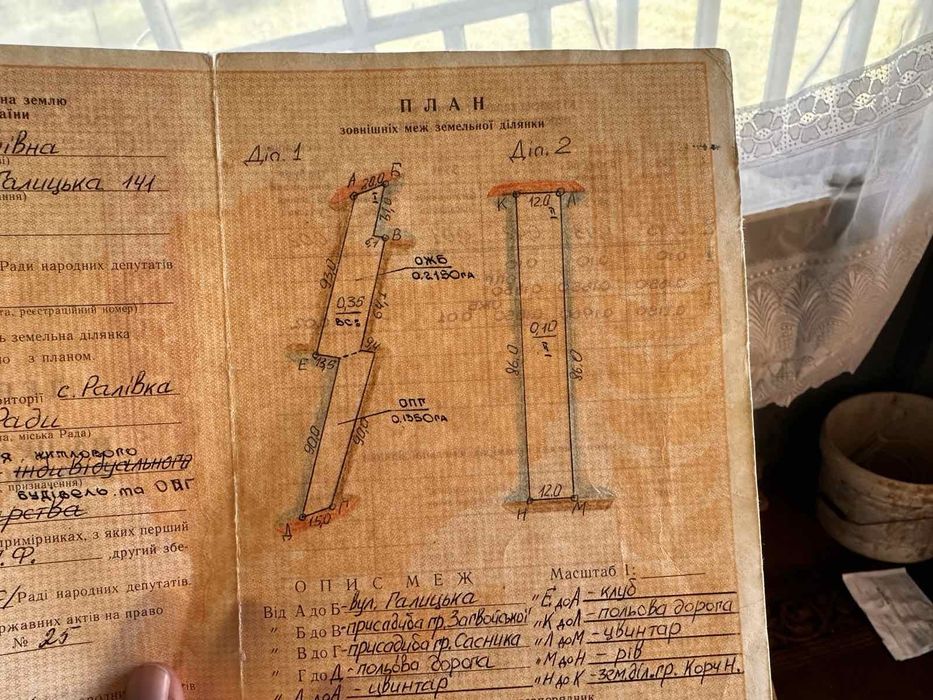 на землю
аїни
івна
Галицька 141
Ради народних депутатів
та, реєстраційний номер)
ь земельна ділянка
о з планом.
риторії с. Ралівка
Ради
на, міська Рада)
я, житлового
індивідуального
призначення)
будівель та ОПГ
арства
примірниках, з яких перший
.Ф. , другий збе-
Ради народних депутатів.
ержавних актів на право
№ 25
ПЛАН
зовнішніх меж земельної ділянки
Діл. 1
Діл. 2
А 20,0 Б
В
93,0
ОЖБ
0.2190га
64,2
0,35
9,4
Е 13,5
ОПГ
0.1350га
90,0
90,0
Д 15,0 Г
К 12.0 Л
86.0
0,10
86.0
Н 12.0 М
ОПИС МЕЖ
Масштаб 1:
Від А до Б - вул. Галицька
" Б до В - присадиба гр. Загвойської
" В до Г - присадиба гр. Сасника
" Г до Д - польова дорога
" Д до А - цвинтар
" Е до А - клуб
" К до Л - польова дорога
" Л до М - цвинтар
" М до Н - рів
" Н до К - зем. діл. гр. Корч Н.